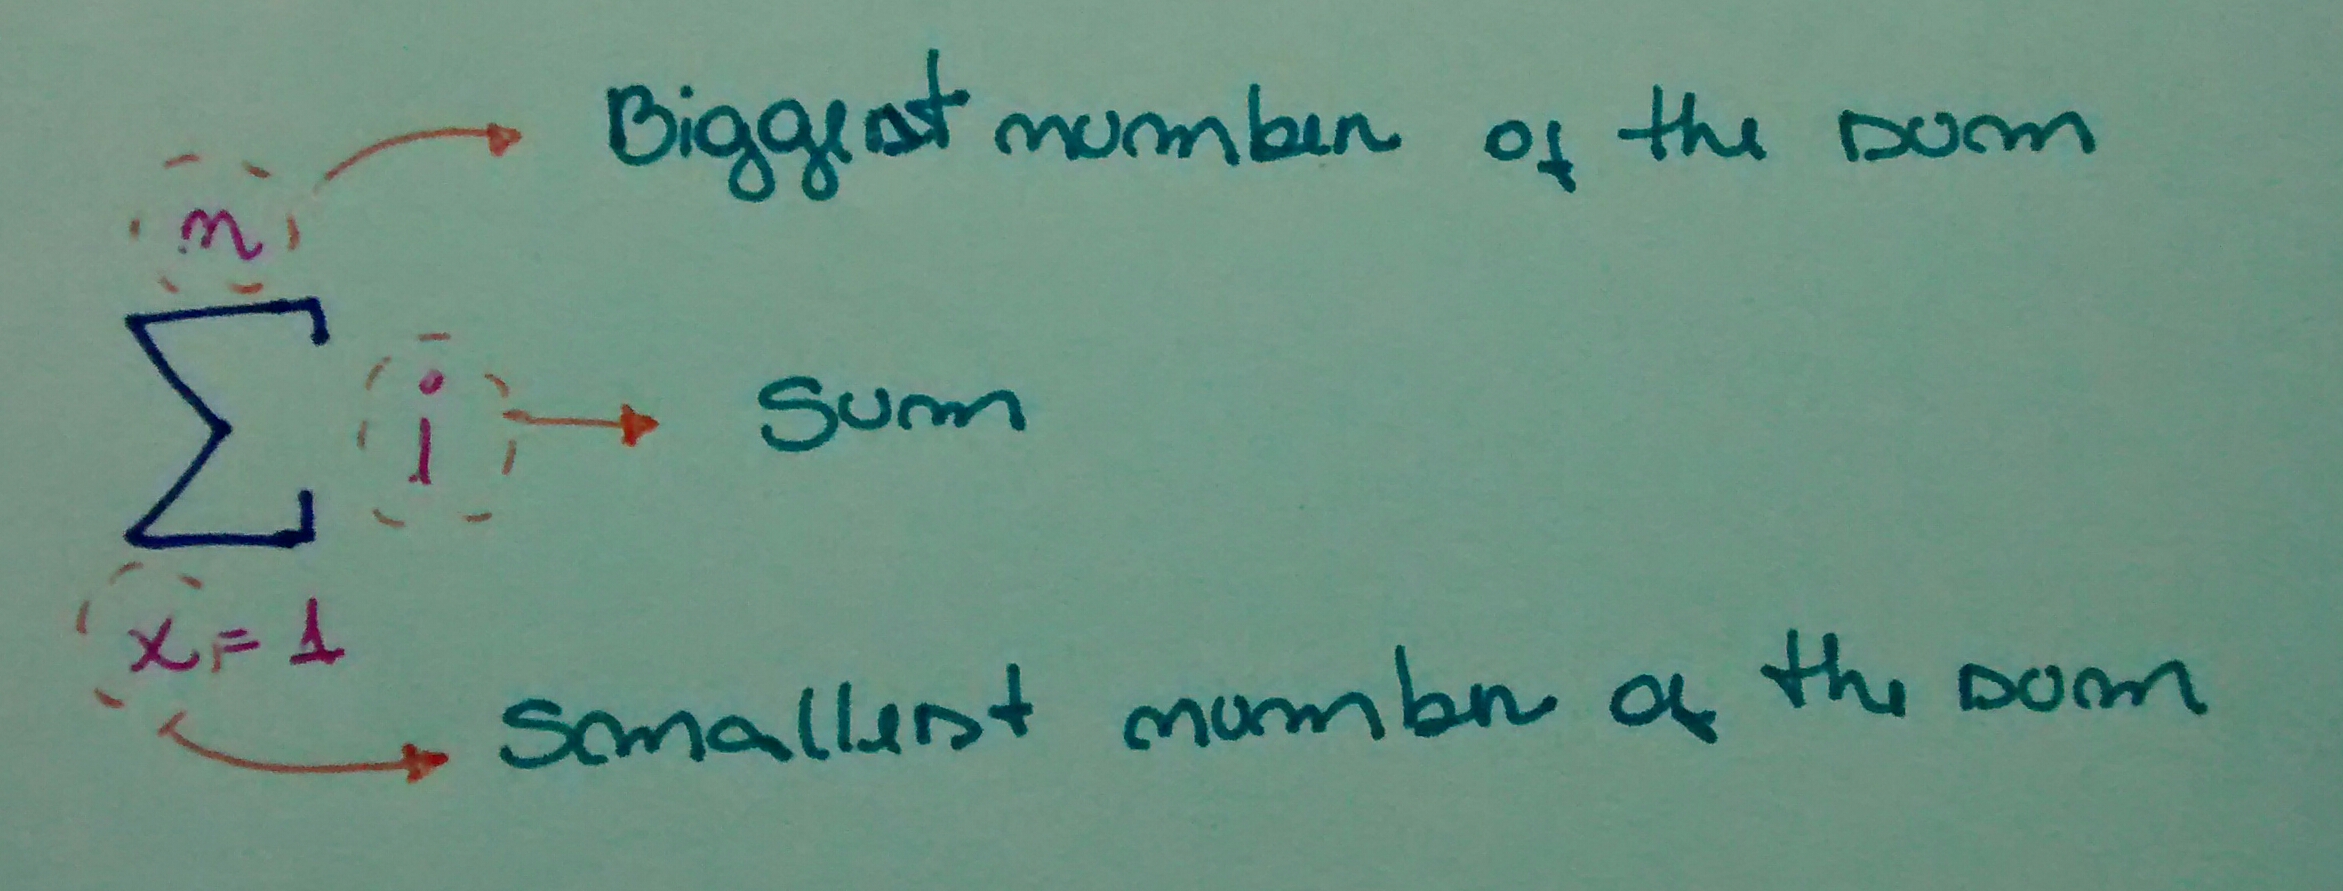 n
Biggest number of the sum
∑ i
Sum
x = 1
Smallest number of the sum